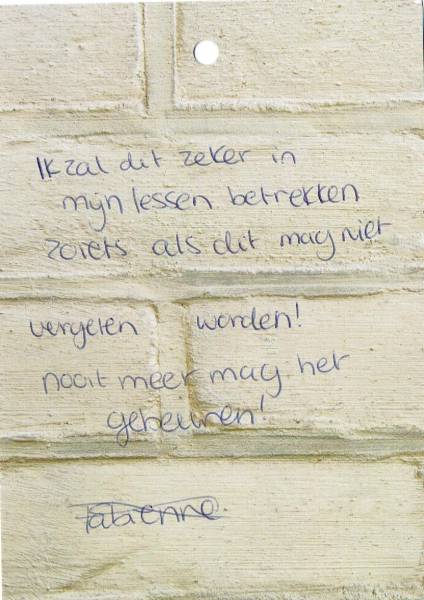 Ik zal dit zeker in
mijn lessen betrekken
zoiets als dit mag niet
vergeten worden!
nooit meer mag het
gebeuren!
Fabienne.